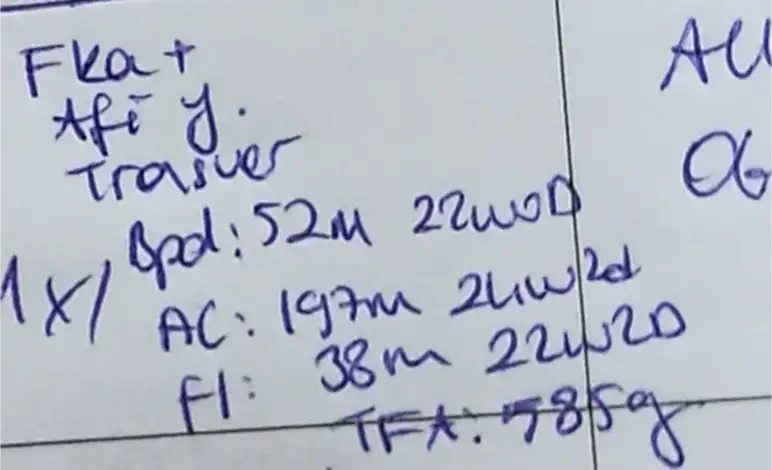 Fka +
Afi y.
Trasver
Bpd: 52m 22w0D
1x/
AC: 197m 24w2d
Fl: 38m 22w2D
TFA: 585g
AU
OG